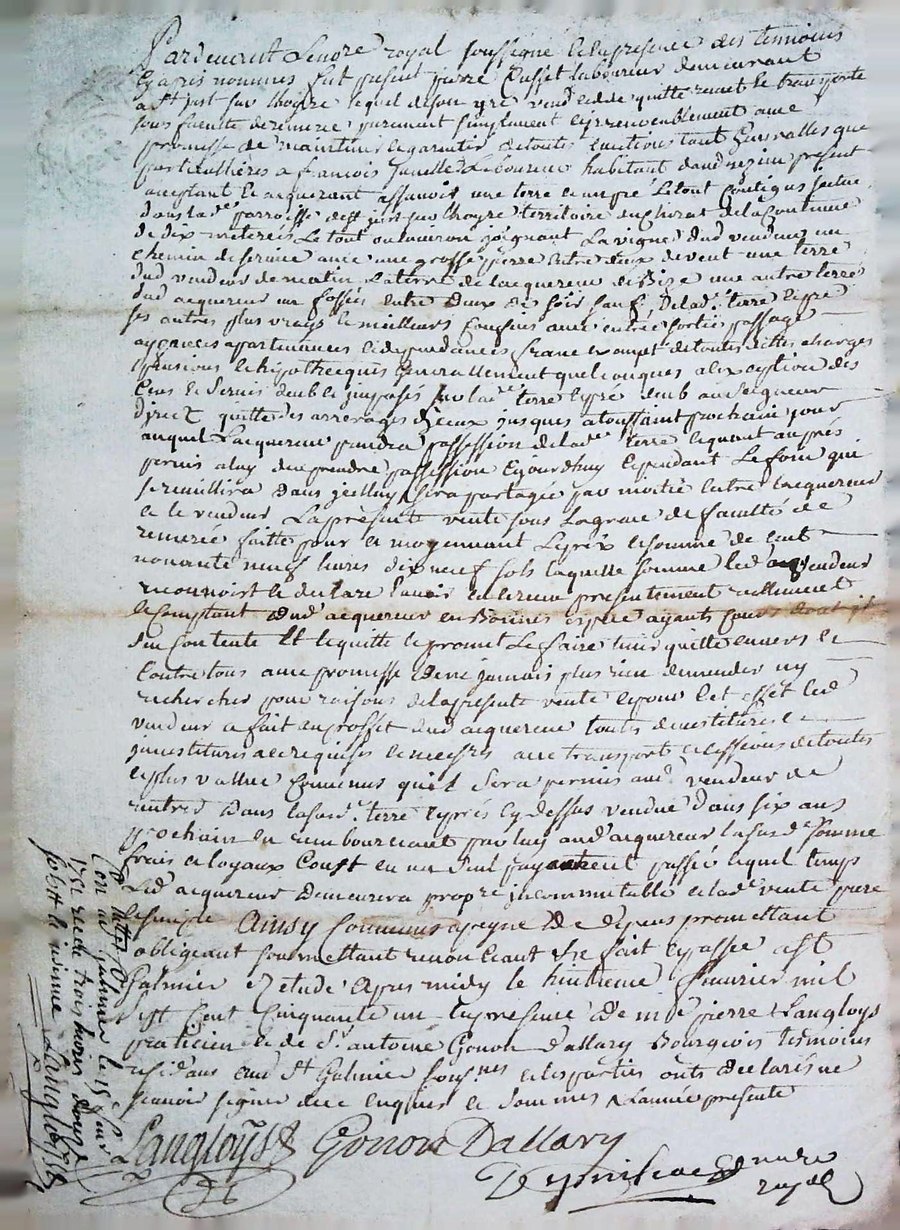 Pardevant Lenore royal soussigné et en presence des temoins
cy apres nommes fut present pierre laboureur demeurant
a St just sur loyre lequel de son gré vend cede quitte remet et transporte
sous faculté de remere purement simplement et irrevocablement avec
promesse de maintenir et garantir de toutes evictions tant generalles que
particullieres a francois Laboureur habitant present
acceptant et acquerant assavoir une terre et un pré le tout contigus scitué
dans lad. parroisse de st just sur loyre territoire du de la Contenue
de dix le tout ou environ joignant La vigne dud vendeur un
chemin de service avec une grosse pierre entre deux de vent une terre
dud vendeur de matin La terre de lacquereur de Bize une autre terre
dud acquereur un fossé entre deux de soir sauf de lad. terre et pré
ses autres plus vrays et meilleurs Confins avec entrée sortie passage
aysances appartenances et dependances franc exempt de toutes dettes charges
pensions et hipothecques generallement quelconques a lexception des
Cens et servis deub et imposés sur lad. terre et pré deub au seigneur
direct quitte des arrerages diceux jusques a toussaint prochain jour
auquel Lacquereur prendra possession de lad. terre et quant au pré
permis a luy den prendre possession aujourdhuy cependant Le foin qui
se dans jcelluy sera partagée par moitié entre lacquereur
et le vendeur La présente vente sous la grace de faculté de
remeré faitte pour et moyennant Le prix et somme de cent
nonante neuf livres dix neuf sols laquelle somme led vendeur
reconnoist et declare l'avoir et receu presentement reellement
et Comptant dud acquereur en Bonnes espece ayants cours dont il
sen contente et le quitte et promet Le faire tenir quitte envers et
Contre tous avec promesse de ne jamais plus rien demander ny
rechercher pour raisons de la presente vente et pour cet effet led
vendeur a fait au proffit dud acquereur touts devestitures et
jnvestitures a ce requises et necessres avec transports et cessions de toutes
et plus vallue Convenus quil sera permis aud. vendeur de
rentrer dans la susd. terre et prés cy dessus vendue dans six ans
prochain en rembourceant par luy aud acquereur la susd somme
frais et loyaux Coust en un seul payement passé lequel temps
Led acquereur demeurera propre incommutable et lad. vente pure
et simple Ainsy Convenus a peyne de depens promettant
obligeant soumettant renonceant &c fait et passée a St
Galmier etude apres midy le huitieme fevrier mil
sept cent Cinquante un en presence de me pierre Langloys
praticien et de Sr. antoine Gonon Dallary Bourgeois temoins
resid ans aud St Galmier sous.nes et les parties onts declarés ne
scavoir signer de ce enquis et sommes &
Langloÿs Gonon Dallary
nore
royal
Con a St galmier le 15e feur
1751 recu trois livres douze
sols
Langloys